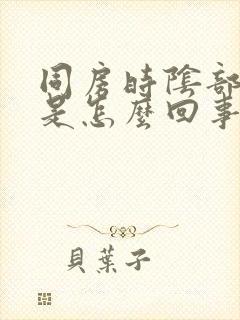 同房時陰部
是怎麼回事
貝葉子